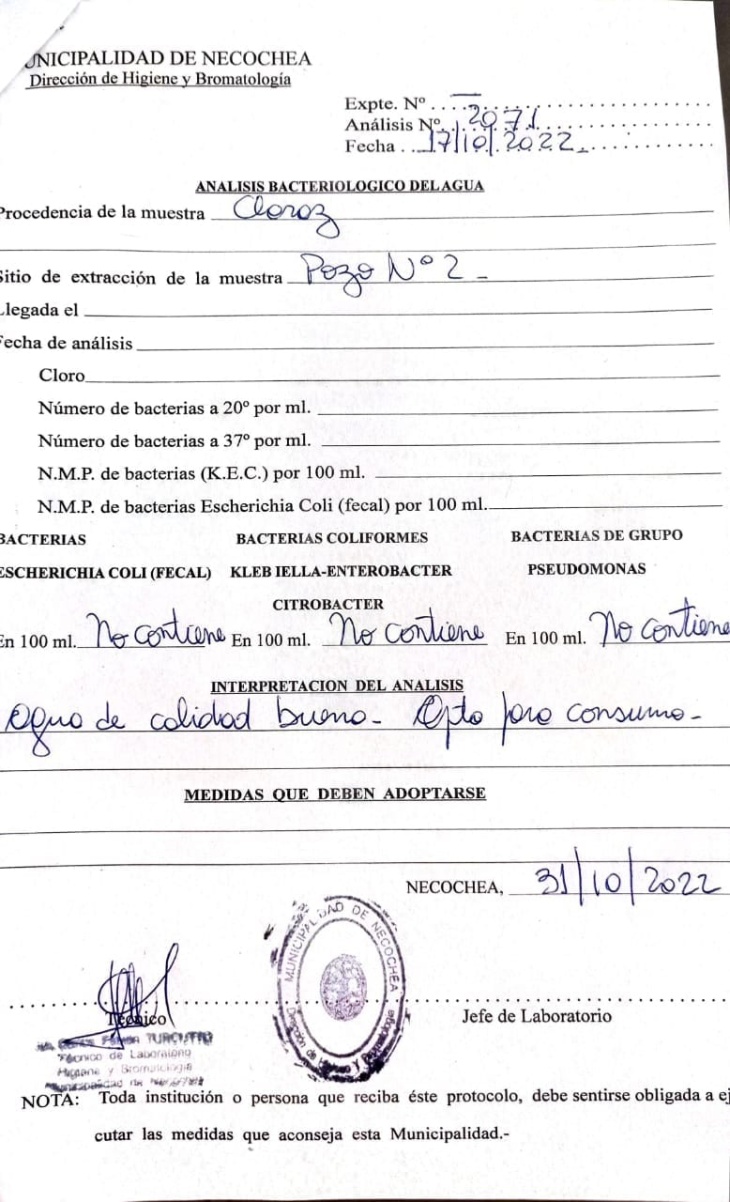 UNICIPALIDAD DE NECOCHEA
Dirección de Higiene y Bromatología
Expte. Nº . . . . — . . . . . . . . . . . . . . . . . . . . . . . .
Análisis Nº. . 2071 . . . . . . . . . . . . . . . . . .
Fecha . . 17/10/.2022.- . . . . . . . . . . . .
ANALISIS BACTERIOLOGICO DEL AGUA
Procedencia de la muestra Claraz
Sitio de extracción de la muestra Pozo Nº 2 -
Llegada el
Fecha de análisis
Cloro
Número de bacterias a 20º por ml.
Número de bacterias a 37º por ml.
N.M.P. de bacterias (K.E.C.) por 100 ml.
N.M.P. de bacterias Escherichia Coli (fecal) por 100 ml.
BACTERIAS BACTERIAS COLIFORMES BACTERIAS DE GRUPO
ESCHERICHIA COLI (FECAL) KLEB IELLA-ENTEROBACTER PSEUDOMONAS
CITROBACTER
En 100 ml. No contiene En 100 ml. No contiene En 100 ml. No contiene
INTERPRETACION DEL ANALISIS
Agua de calidad buena - Apta para consumo -
MEDIDAS QUE DEBEN ADOPTARSE
NECOCHEA, 31/10/2022
MUNICIPALIDAD DE NECOCHEA
Dirección de Higiene y Bromatología
Técnico Jefe de Laboratorio
TURCUTTO
Técnico de Laboratorio
Higiene y Bromatología
Municipalidad de Necochea
NOTA: Toda institución o persona que reciba éste protocolo, debe sentirse obligada a ej
cutar las medidas que aconseja esta Municipalidad.-